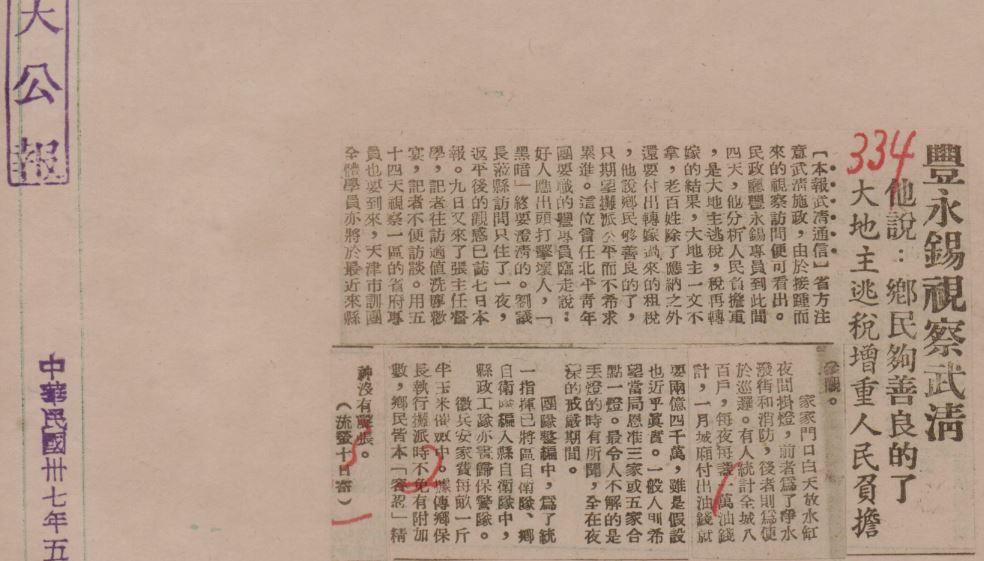 豐永錫視察武清
他說：鄉民夠善良的了
大地主逃稅增重人民負擔
334
【本報武清通信】省方注
意武清施政，由於接踵而
來的視察訪問便可看出。
民政廳豐永錫專員到此間
四天，他分析人民負擔重
，是大地主逃稅，稅再轉
嫁的結果，大地主一文不
拿，老百姓除了應納之外
還要付出轉嫁過來的租稅
，他說鄉民够善良的了，
只期望攤派公平而不希求
累進。這位曾任北平青年
團要職的豐專員臨走說：
好人應出頭打擊壞人，「
黑暗」終要澄清的。劉議
長蒞縣訪問只住了一夜，
返平後的觀感已誌七日本
報。九日又來了張主任督
學，記者往訪適值洗塵歡
宴，記者不便訪談。用五
十四天視察一區的省府專
員也要到來，天津市訓團
全體學員亦將於最近來縣
參觀。
家家門口白天放水缸
夜間掛燈，前者為了淨水
潑街和消防，後者則為便
於巡邏。有人統計全城八
百戶，每夜每盞一萬油錢
計，一月城廂付出油錢就
要兩億四千萬，雖是假設
也近乎真實。一般人則希
望當局恩准三家或五家合
點一燈。最令人不解的是
丟燈的時有所聞，全在夜
深的戒嚴期間。
團隊整編中，為了統
一指揮已將區自衛隊、鄉
自衛隊編入縣自衛隊中，
縣政工隊亦書歸保警隊。
徵兵安家費每畝一斤
半玉米催收中。據傳鄉保
長執行攤派時不免有附加
數，鄉民皆本「容忍」精
神沒有聲張。
（流螢十日寄）
1
2
大公報
中華民國卅七年五